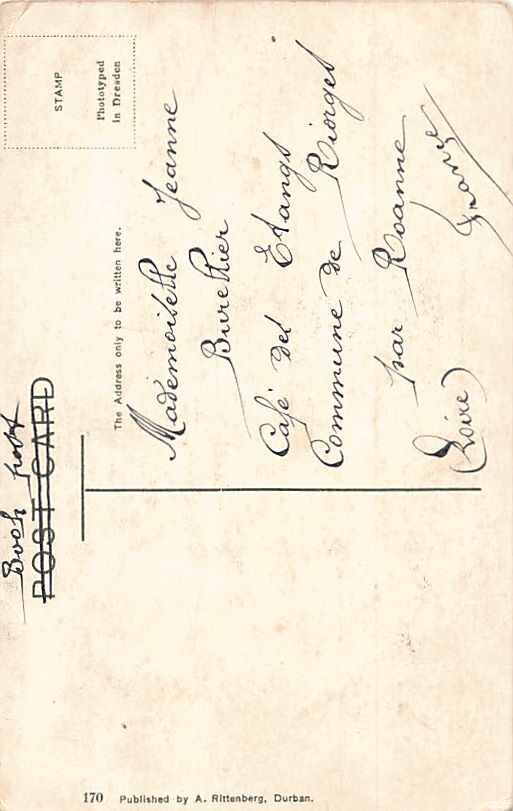 Book post
POST CARD
STAMP
Phototyped
in Dresden
The Address only to be written here.
Mademoiselle Jeanne
Burellier
Café des Etangs
Commune de Riorges
par Roanne
(Loire)
France
170 Published by A. Rittenberg, Durban.